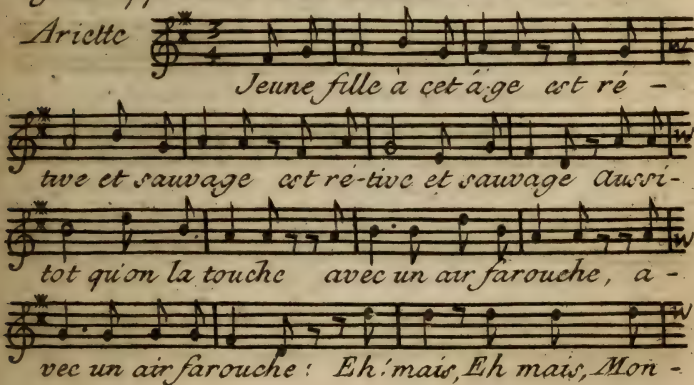 Ariette
3
4
Jeune fille à cet á-ge est ré-
tive et sauvage est ré-tive et sauvage Aussi-
tot qu'on la touche avec un air farouche, a-
vec un air farouche: Eh! mais, Eh mais, Mon-